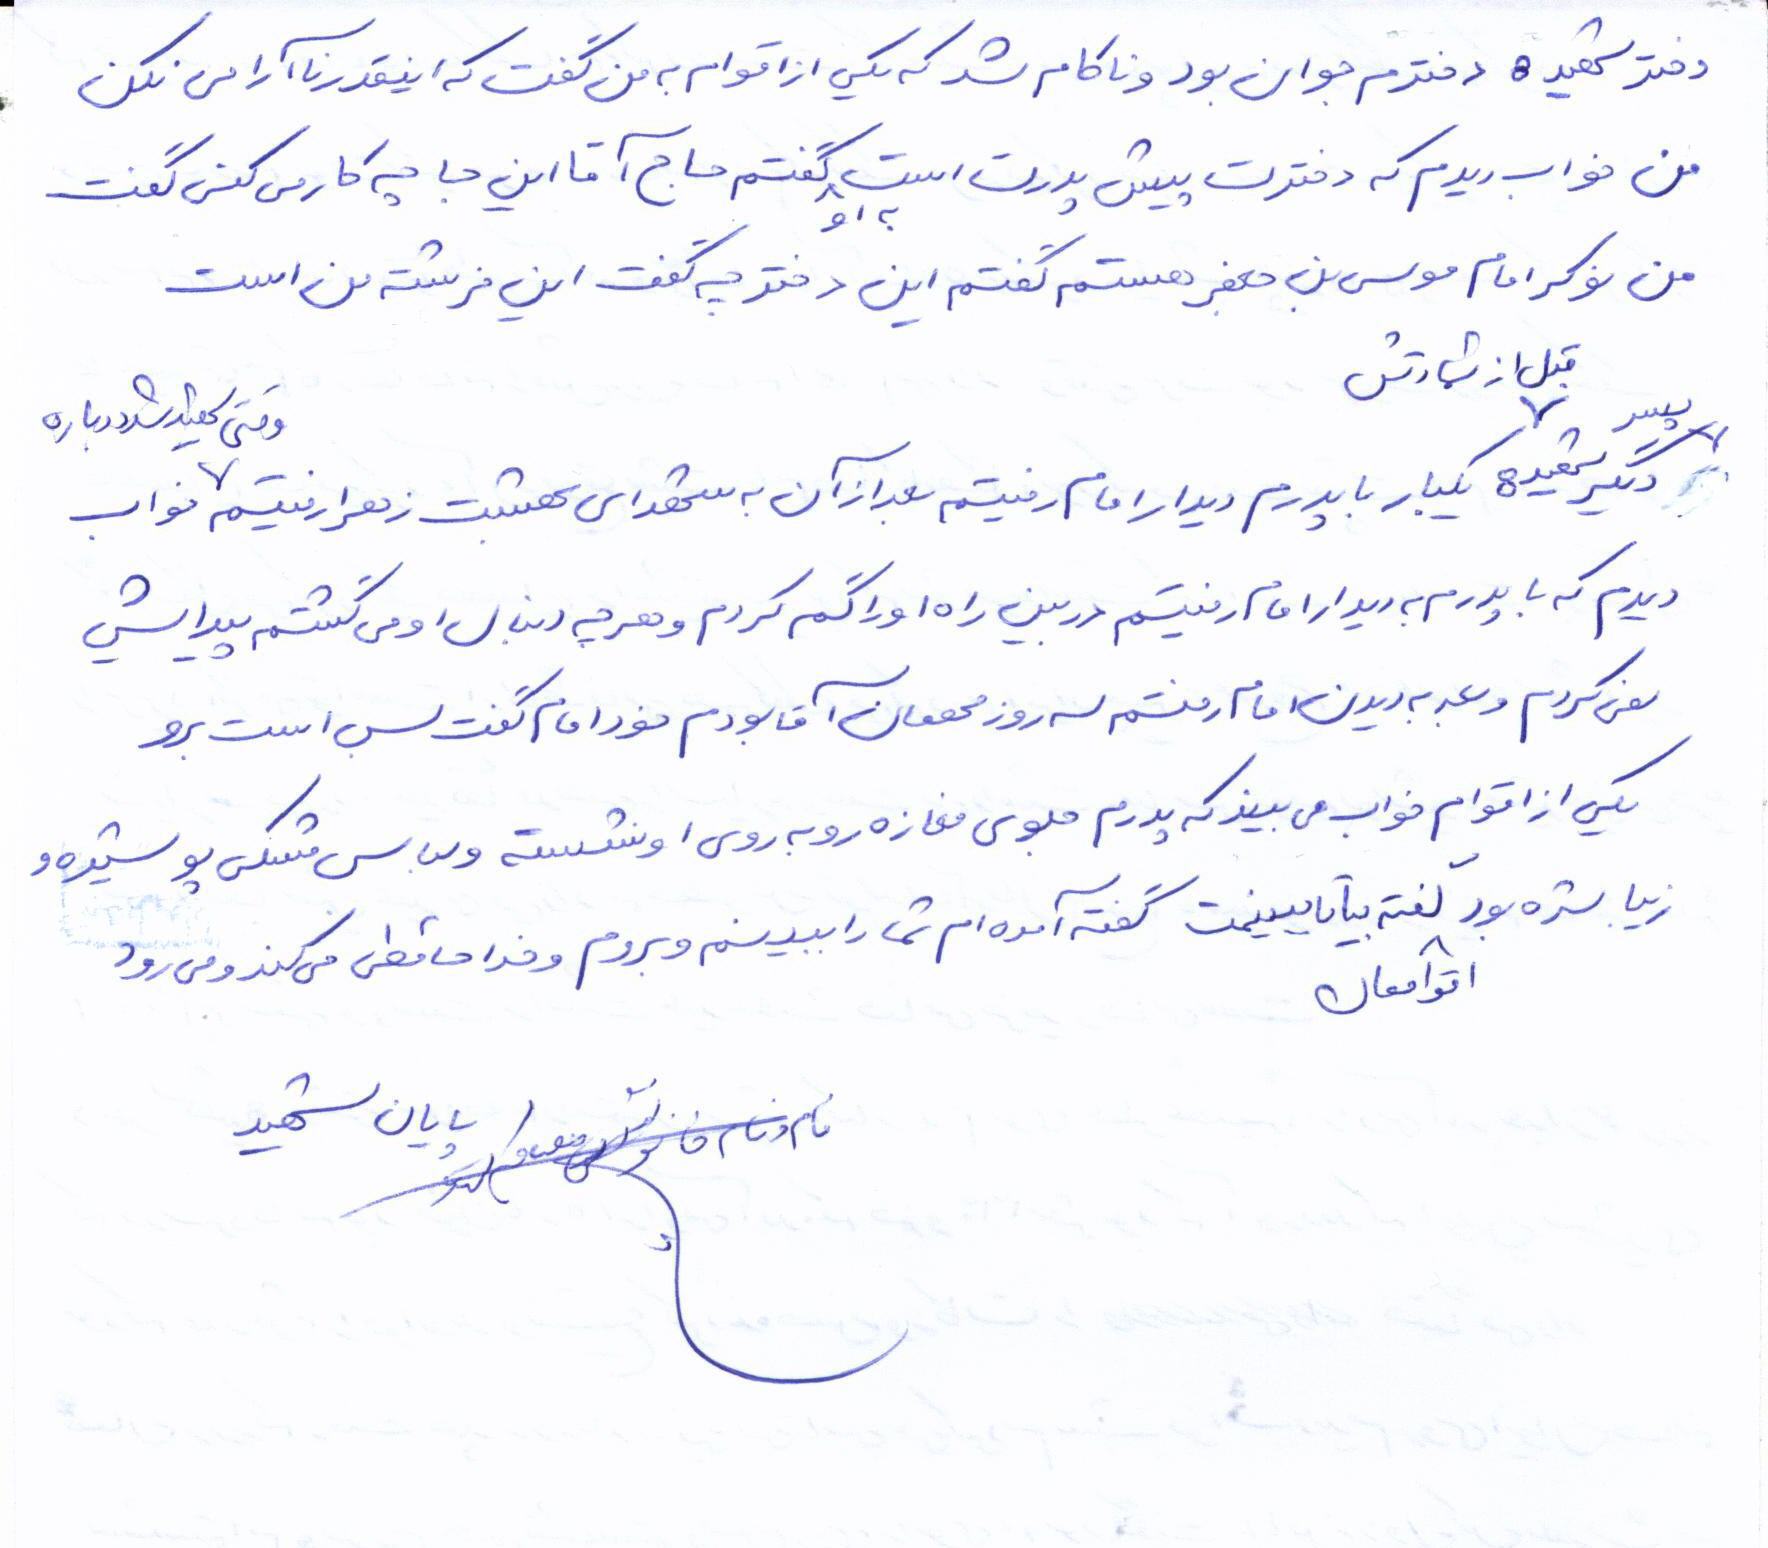 دختر شهید: دخترم جوان بود و ناکام شد که یکی از اقوام به من گفت که اینقدر ناآرامی نکن
من خواب دیدم که دخترت پیش پدرت است به او گفتم حاج آقا این جا چه کار می کنی گفت
من نوکر امام موسی بن جعفر هستم گفتم این دختر چه گفت این فرشته من است
قبل از شهادتش
پسر
وقتی شهید شد دوباره
دیگر شهید: یکبار با پدرم دیدار امام رفتیم بعد از آن به شهدای بهشت زهرا رفتیم خواب
دیدم که با پدرم به دیدار امام رفتیم در بین راه او را گم کردم و هر چه دنبال او می گشتم پیدایش
نمی کردم و بعد به دیدن امام رفتم سه روز مهمان آقا بودم خود امام گفت بس است برو
یکی از اقوام خواب می بیند که پدرم جلوی مغازه رو به روی او نشسته و لباس مشکی پوشیده و
زیبا شده بود گفته بیا تا ببینمت گفته آمده ام شما را ببینم و بروم و خداحافظی می کند و می رود
اقوامعان
پایان شهید